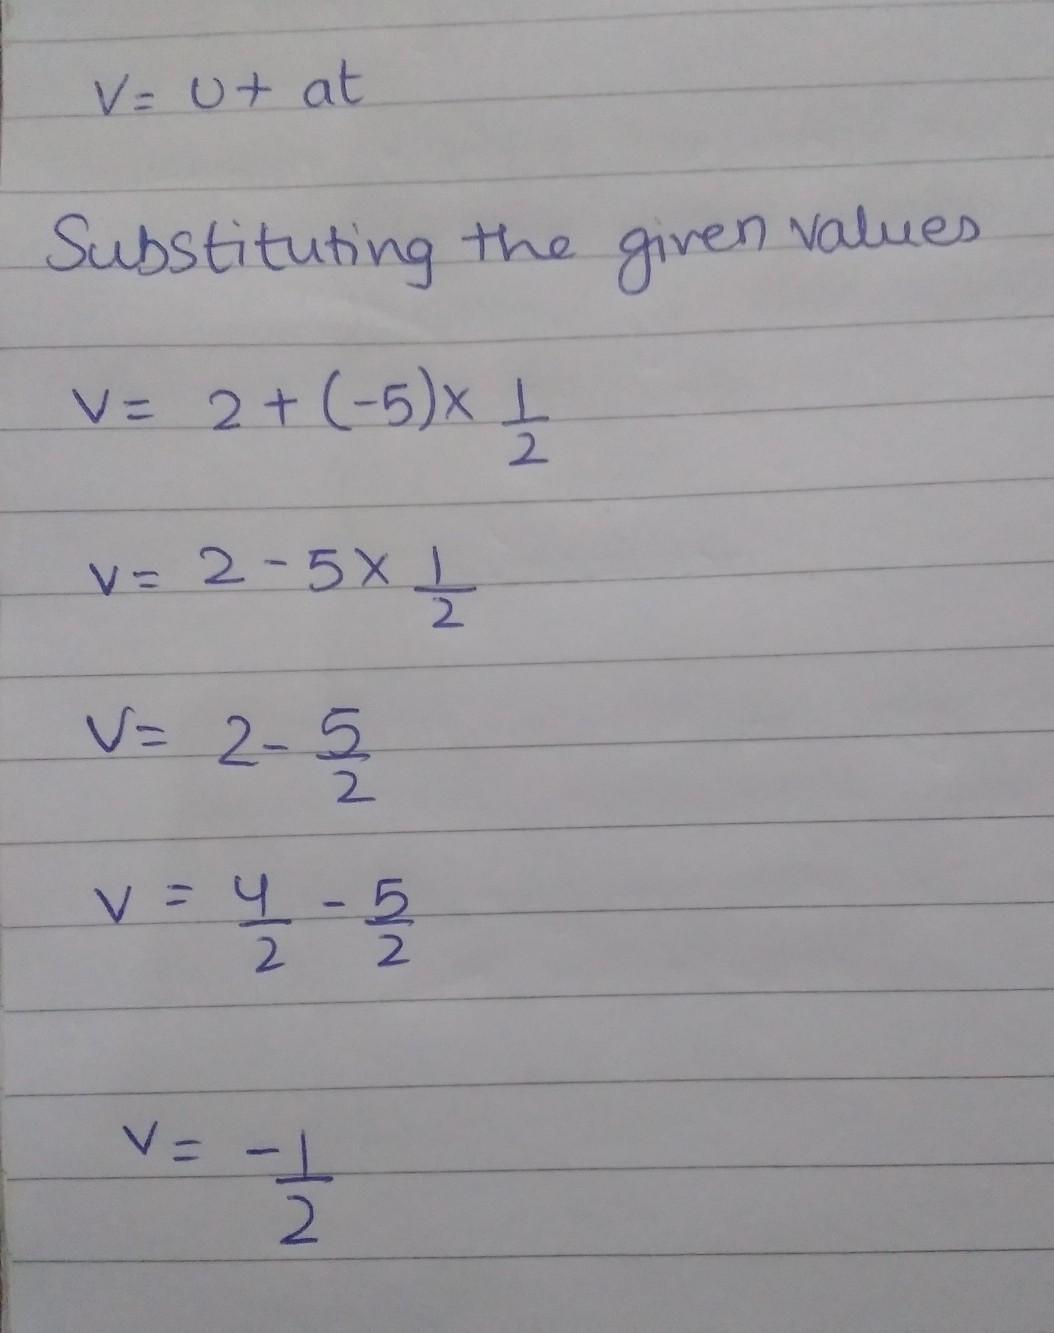 V= u+ at
Substituting the given values
V= 2+(-5)× 1/2
V= 2-5× 1/2
V= 2- 5/2
V = 4/2 - 5/2
V= -1/2